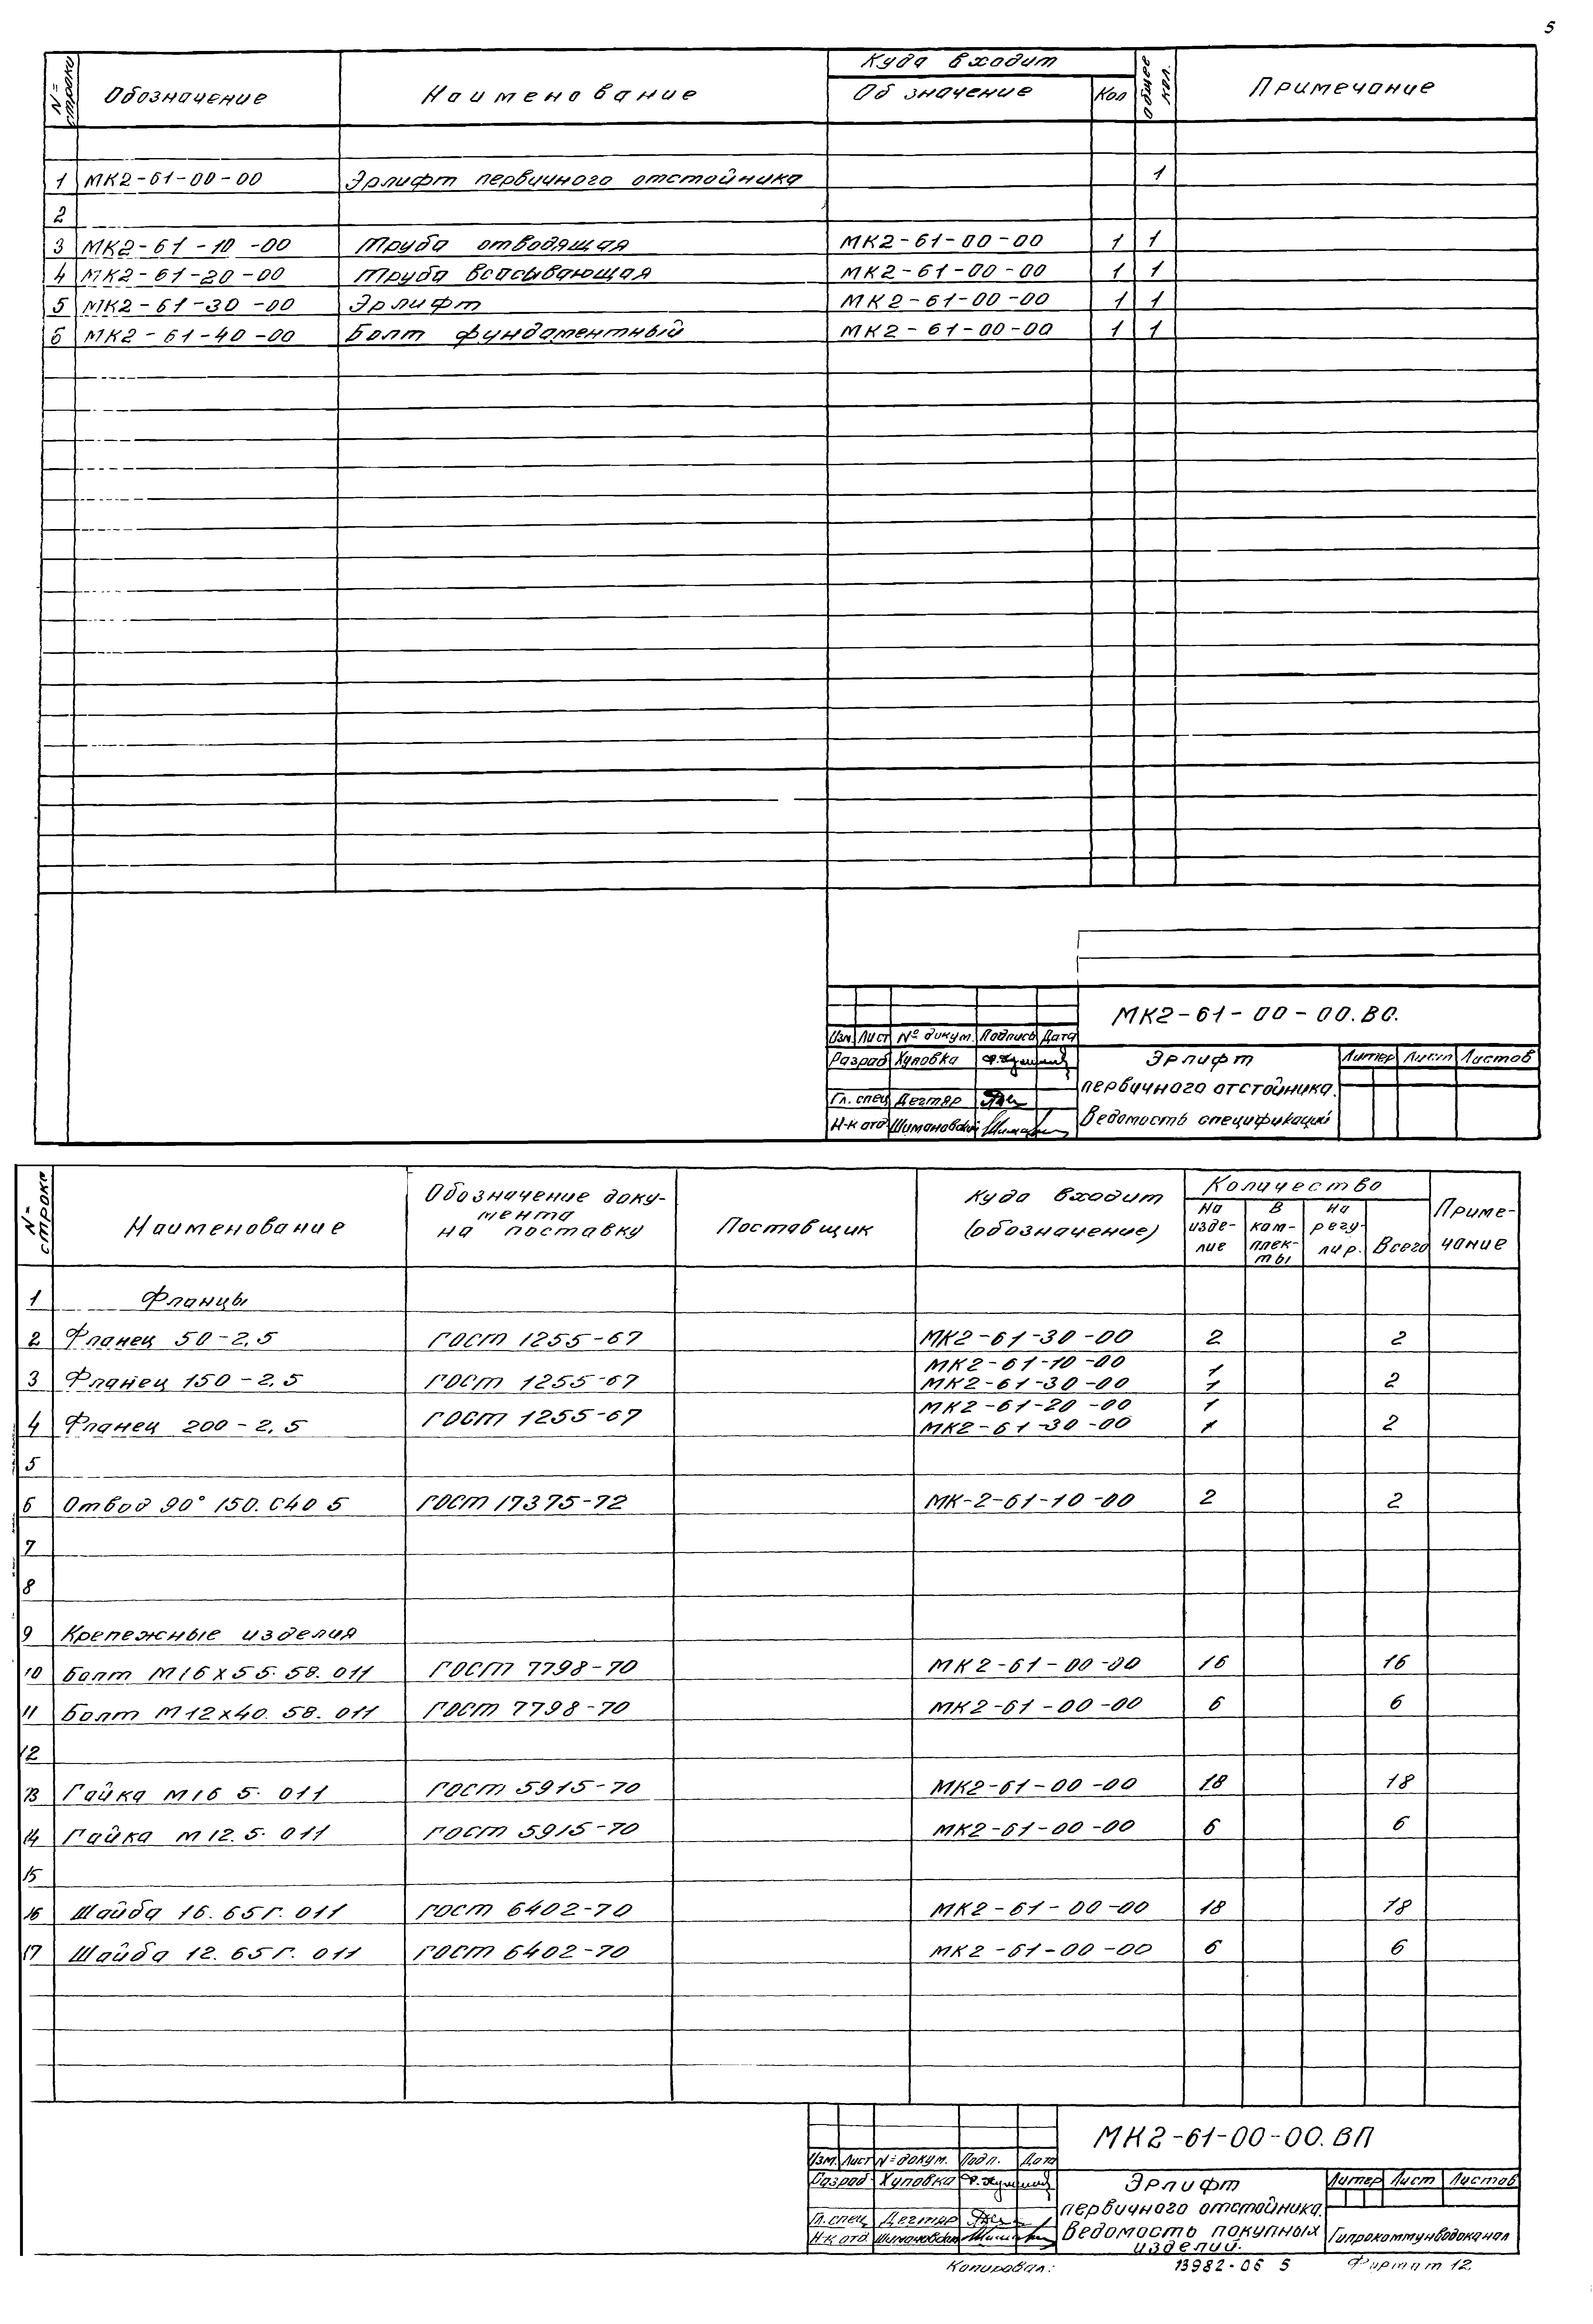 5
№ строки Обозначение Наименование Куда входит Общее кол. Примечание
Об значение Кол
1 МК2-61-00-00 Эрлифт первичного отстойника 1
2
3 МК2-61-10-00 Труба отводящая МК2-61-00-00 1 1
4 МК2-61-20-00 Труба всасывающая МК2-61-00-00 1 1
5 МК2-61-30-00 Эрлифт МК2-61-00-00 1 1
6 МК2-61-40-00 Болт фундаментный МК2-61-00-00 1 1
МК2-61-00-00.ВС.
Изм. Лист № докум. Подпись Дата
Разраб Хуповка
Гл. спец Дегтяр
Н-к отд Шимановский
Эрлифт
первичного отстойника.
Ведомость спецификаций
Литер Лист Листов
№ строке Наименование Обозначение доку-
мента
на поставку Поставщик Куда входит
(обозначение) Количество Приме-
чание
На
изде-
лие В
ком-
плек-
ты На
регу-
лир. Всего
1 Фланцы
2 Фланец 50-2,5 ГОСТ 1255-67 МК2-61-30-00 2 2
МК2-61-10-00 1
3 Фланец 150-2,5 ГОСТ 1255-67 МК2-61-30-00 1 2
МК2-61-20-00 1
4 Фланец 200-2,5 ГОСТ 1255-67 МК2-61-30-00 1 2
5
6 Отвод 90° 150. С40 5 ГОСТ 17375-72 МК-2-61-10-00 2 2
7
8
9 Крепежные изделия
10 Болт М16х55. 58. 011 ГОСТ 7798-70 МК2-61-00-00 16 16
11 Болт М12х40. 58. 011 ГОСТ 7798-70 МК2-61-00-00 6 6
12
13 Гайка М16 5. 011 ГОСТ 5915-70 МК2-61-00-00 18 18
14 Гайка М12. 5. 011 ГОСТ 5915-70 МК2-61-00-00 6 6
15
16 Шайба 16. 65Г. 011 ГОСТ 6402-70 МК2-61-00-00 18 18
17 Шайба 12. 65Г. 011 ГОСТ 6402-70 МК2-61-00-00 6 6
МК2-61-00-00.ВП
Изм. Лист № докум. Подп. Дата
Разраб Хуповка
Гл. спец Дегтяр
Н-к отд Шимановский
Эрлифт
первичного отстойника.
Ведомость покупных
изделий.
Литер Лист Листов
Гипрокоммунводоканал
Копировал: 13982-06 5 Формат 12